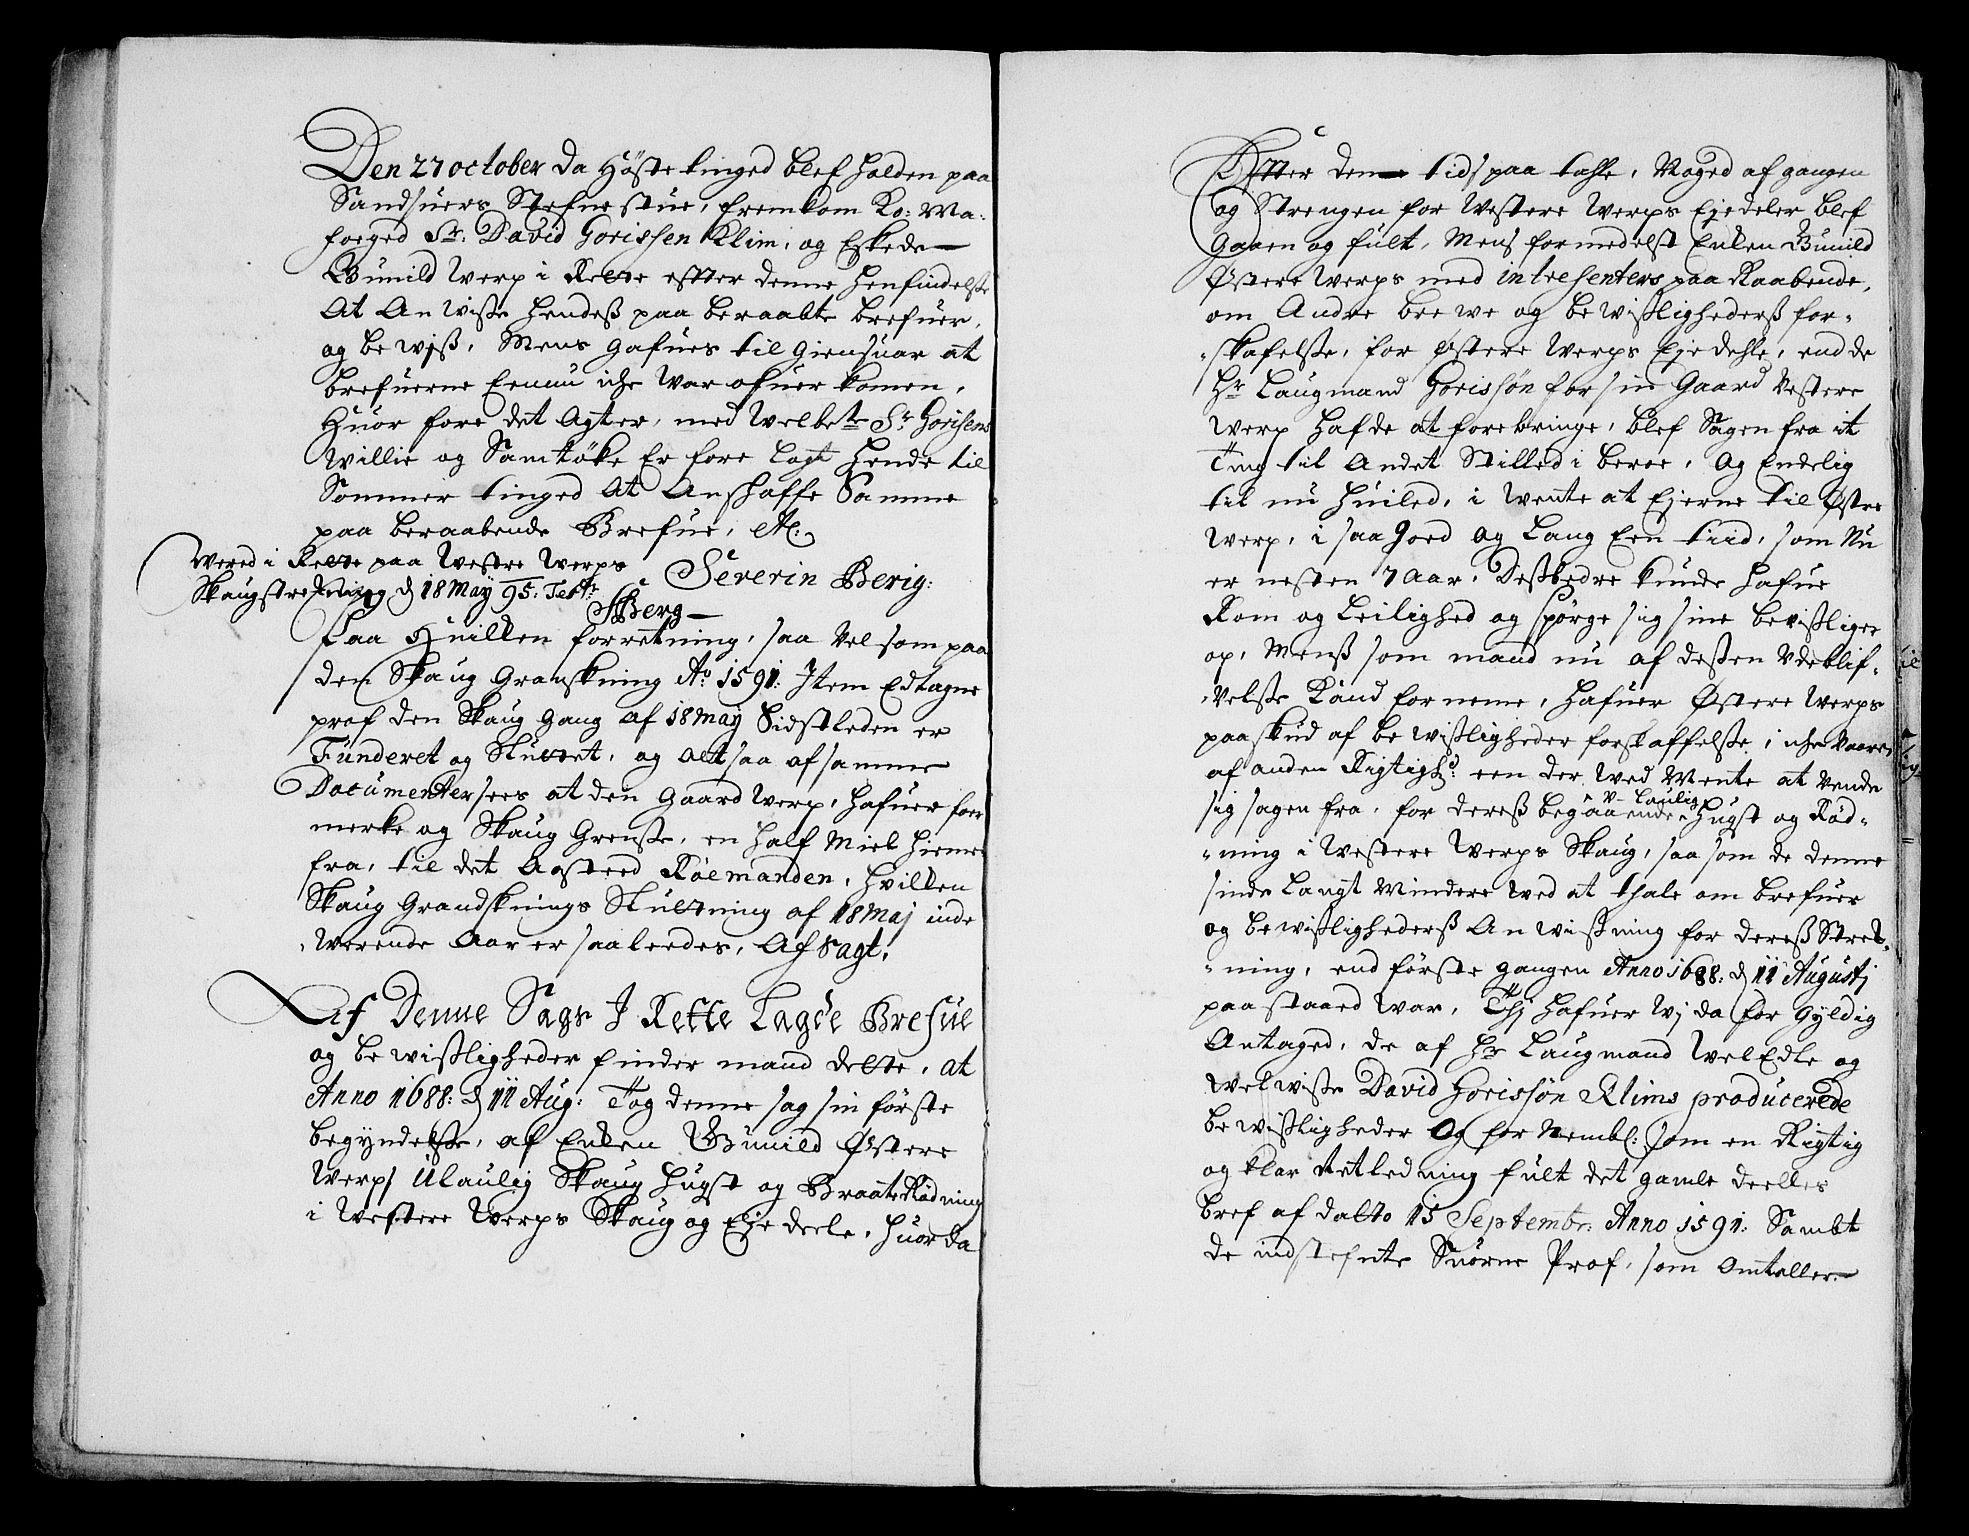 Den 27 october da Höste tinged blef holden paa
Sandsuers Stefne stue, fremkom Ko: Ma:
foeged Sr: David Gorissen Klim, og Eskede
Gunild Werp i Rette efter denne henfindelse
At An Wisse hendeß paa beraabte brefuer,
og bewjß, Mens gafues til giensuar at
brefuerne Ennu iche War ofuer komen,
Huor fore det Agter, med Welbete Sr Gorisens
Willie og Samtöke Er fore lagt hende til
Sommer tinged At Anshaffe Samme
paa beraabende Brefue, etc.
Wered i Rette paa Westre Werps
Skaugstrekning d 18 May 95. Test:
Severin Berig:
SBerg
Paa Huilken forretning, saa Vel som paa
den Skaug Granskning Ao: 1591: Item Edtagne
prof den Skaug gang af 18 May Sidstleden er
Funderet og Sluttet, og alt saa af samme
Documenter sees at den gaard Werp, hafuer for
merke og Skaug Grense, en half Miel hieme
fra, til det Aasteed Röemanden, hvilken
Skaug Grandsknings Slutning af 18 Maj inde
werende Aar er saaleedes, Afsagt.
Af Denne Sags I Rette Lagde Brefue
og bewißligheder finder mand dette, at
Anno 1688: d 11 Aug: Tog denne sag sin förste
begyndelße, af Enken Gunild Östere
Werps Ulaulig Skaug hugst og Braate Rödning
i Westere Werps Skaug og Eje deele, huor da
Efter denne tids paa tahle, Noged af gangen
og Strengen for Westere Werps Ejedeler blef
gaaen og fult, Mens formedelst Enken Gunild
Östere Werps med intresenters paa Raabende,
om Andre brewe og bewißligheders for-
skafelße, for Östere Werps Ejedehle, end de
Hr Laugmand Gorissön for sin Gaard Vestere
Werp hafde at forebringe, blef Sagen fra it
Ting til Andet Stilled i beroe, og Endelig
til nu huiled, i Wente at Ejerne til Östre
Werp, i saa goed og Lang Een tiid, som Nu
er nesten 7 Aar, Deßbedre kunde hafue
Rom og Leilighed og spörge sig sine bevißliger
op, Menß som mand nu af deßen Vdeblif-
velße kand forneme, hafuer Östere Werps
paaskud af bewißligheder forskaffelße, iche vaaren
af anden Rigtighd: een der Wed Mente at Vende
sig sagen fra, for dereß begaaende V-laulig hugst og Röd-
ning i Westere Werps Skaug, saa som de denne
sinde langt Mindere Wed at thale om brefuer
og bewißlighederß An wißning for dereß Strek-
ning, end förste gangen Anno 1688: d 11 Augustj
paa staaed War, Thj hafuer Wj da for gyldig
Antaged, de af Hr Laugmand WelEdle og
Welwise David Gorissön Klims producerede
bewißligheder Og for Nembl: som en Rigtig
og klar Retledning fult det gamle deelles
bref af datto 15 Septembr: Anno 1591: Sambt
de indstefnte Suorne Prof, som omtaller